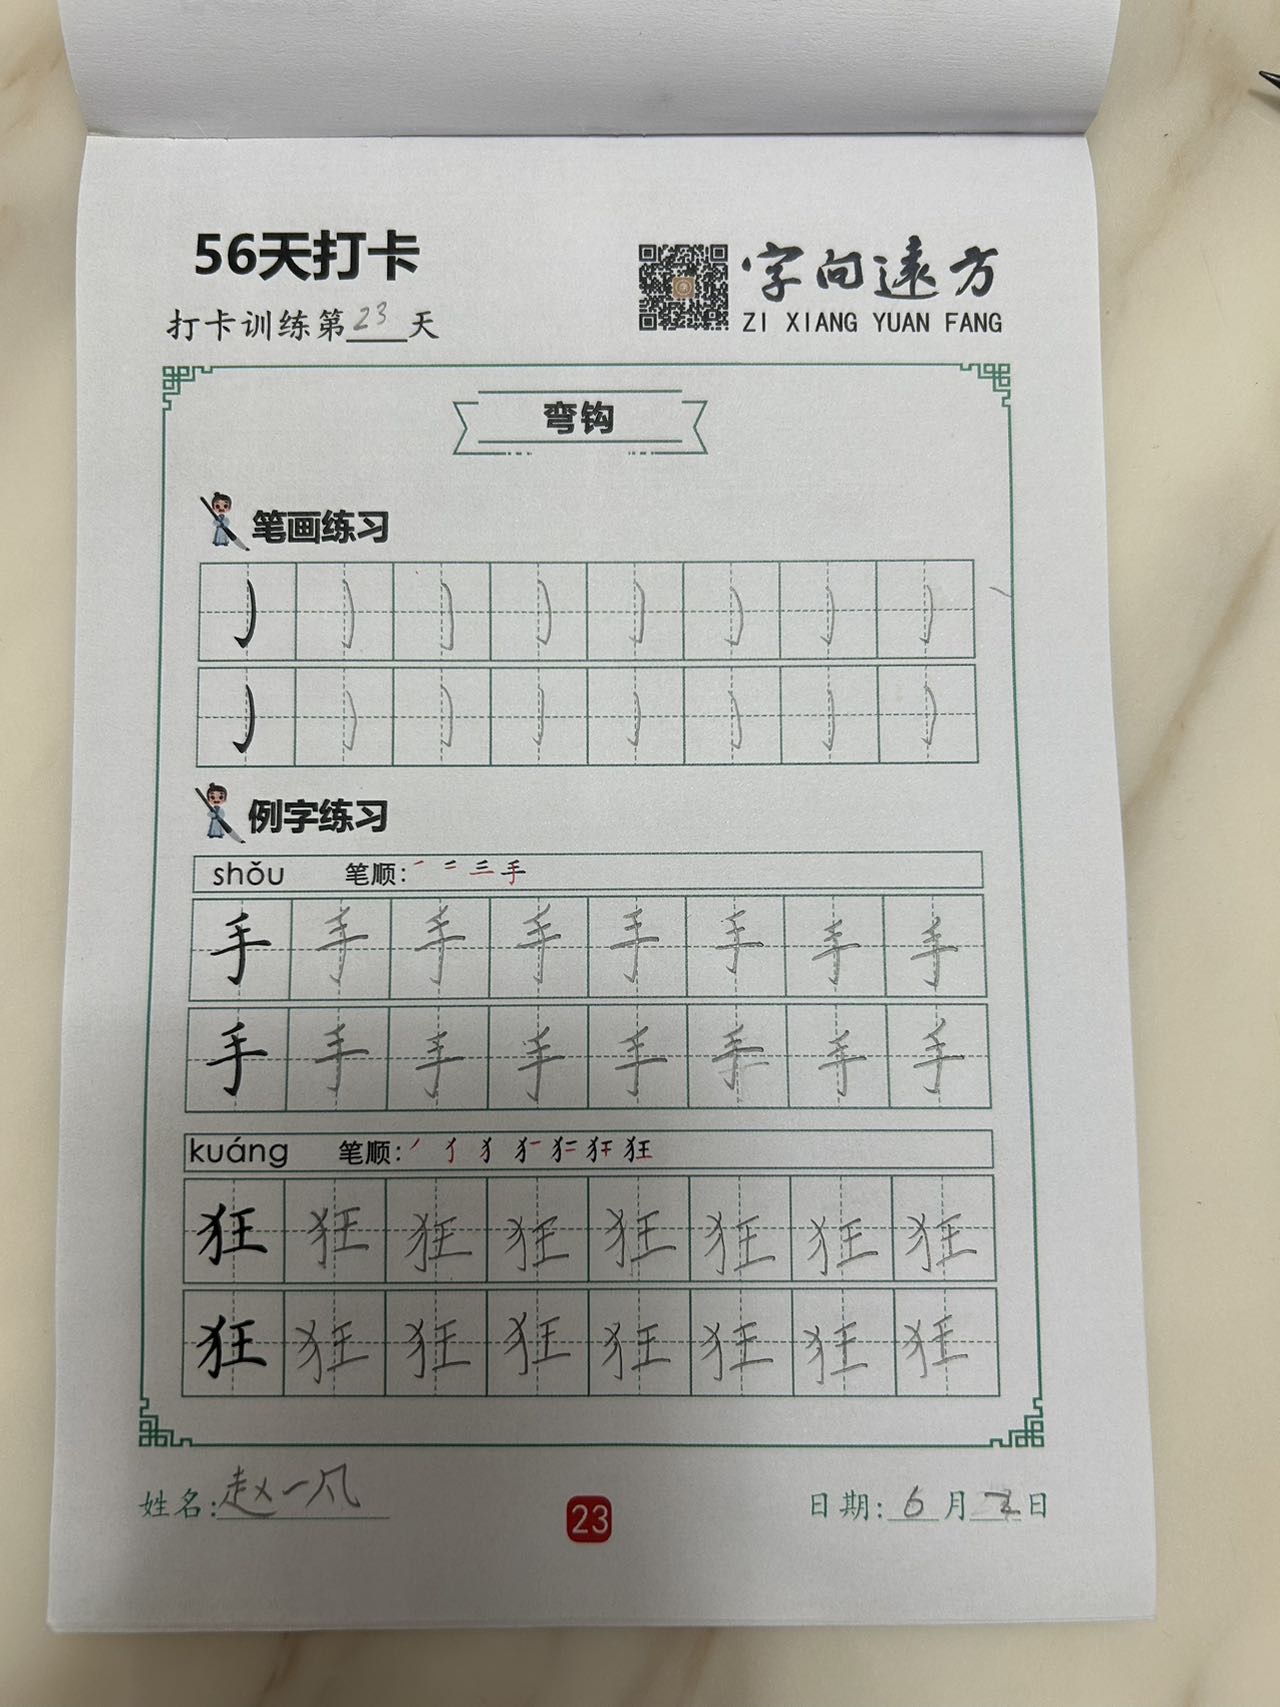 56天打卡
打卡训练第23天
字向远方
ZI XIANG YUAN FANG
弯钩
笔画练习
例字练习
shǒu 笔顺: 手
手 手 手 手 手 手 手 手
手 手 手 手 手 手 手 手
kuáng 笔顺: 狂
狂 狂 狂 狂 狂 狂 狂 狂
狂 狂 狂 狂 狂 狂 狂 狂
姓名:赵一凡
23
日期:6月 日